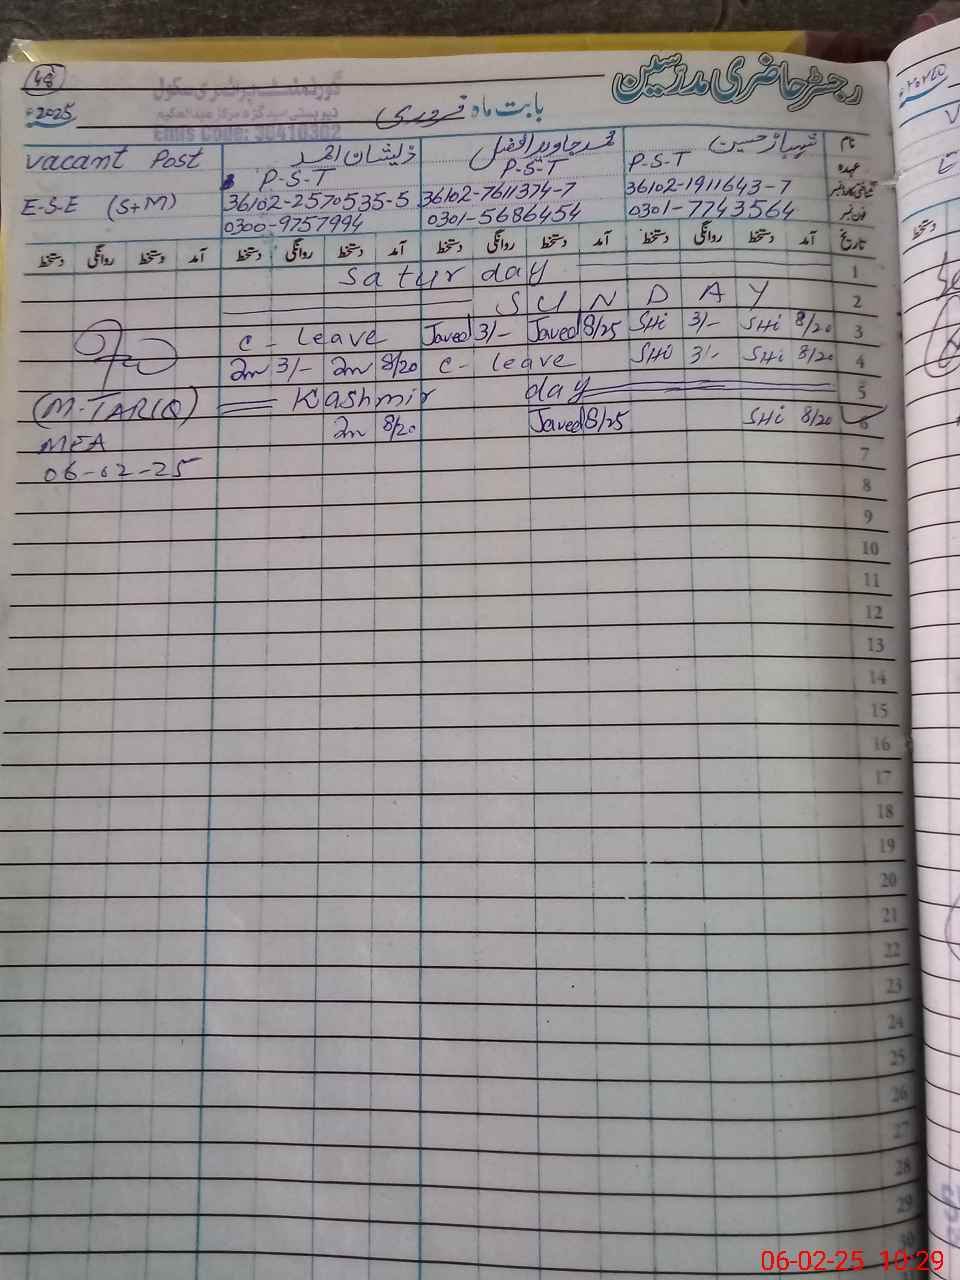 رجسٹر حاضری مدرسین
48
2025ء
بابت ماہ فروری
گورنمنٹ پرائمری سکول
Emis Code: 36410302
نام شہباز حسین محمد جاوید افضل ذیشان احمد Vacant Post
عہدہ P-S-T P-S-T P-S-T E-S-E (S+M)
شناختی کارڈ نمبر 36102-1911643-7 36102-7611374-7 36102-2570535-5
فون نمبر 0301-7743564 0301-5686454 0300-9757994
تاریخ آمد دستخط روانگی دستخط آمد دستخط روانگی دستخط آمد دستخط روانگی دستخط آمد دستخط روانگی دستخط
1 Saturday
2 SUNDAY
3 8/20 SHi 3/- SHi 8/25 Javed 3/- Javed C- Leave
4 8/20 SHi 3/- SHi C- Leave 8/20 3/-
5 Kashmir day
6 8/20 SHi 8/25 Javed 8/20
(M-TARIQ)
MEA
06-02-25
7
8
9
10
11
12
13
14
15
16
17
18
19
20
21
22
23
24
25
26
27
28
29
30
06-02-25 10:29